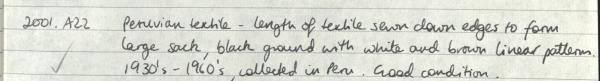 2001.A22 Peruvian textile - length of textile sewn down edges to form
large sack, black ground with white and brown linear pattern.
1930's - 1960's, collected in Peru. Good condition.